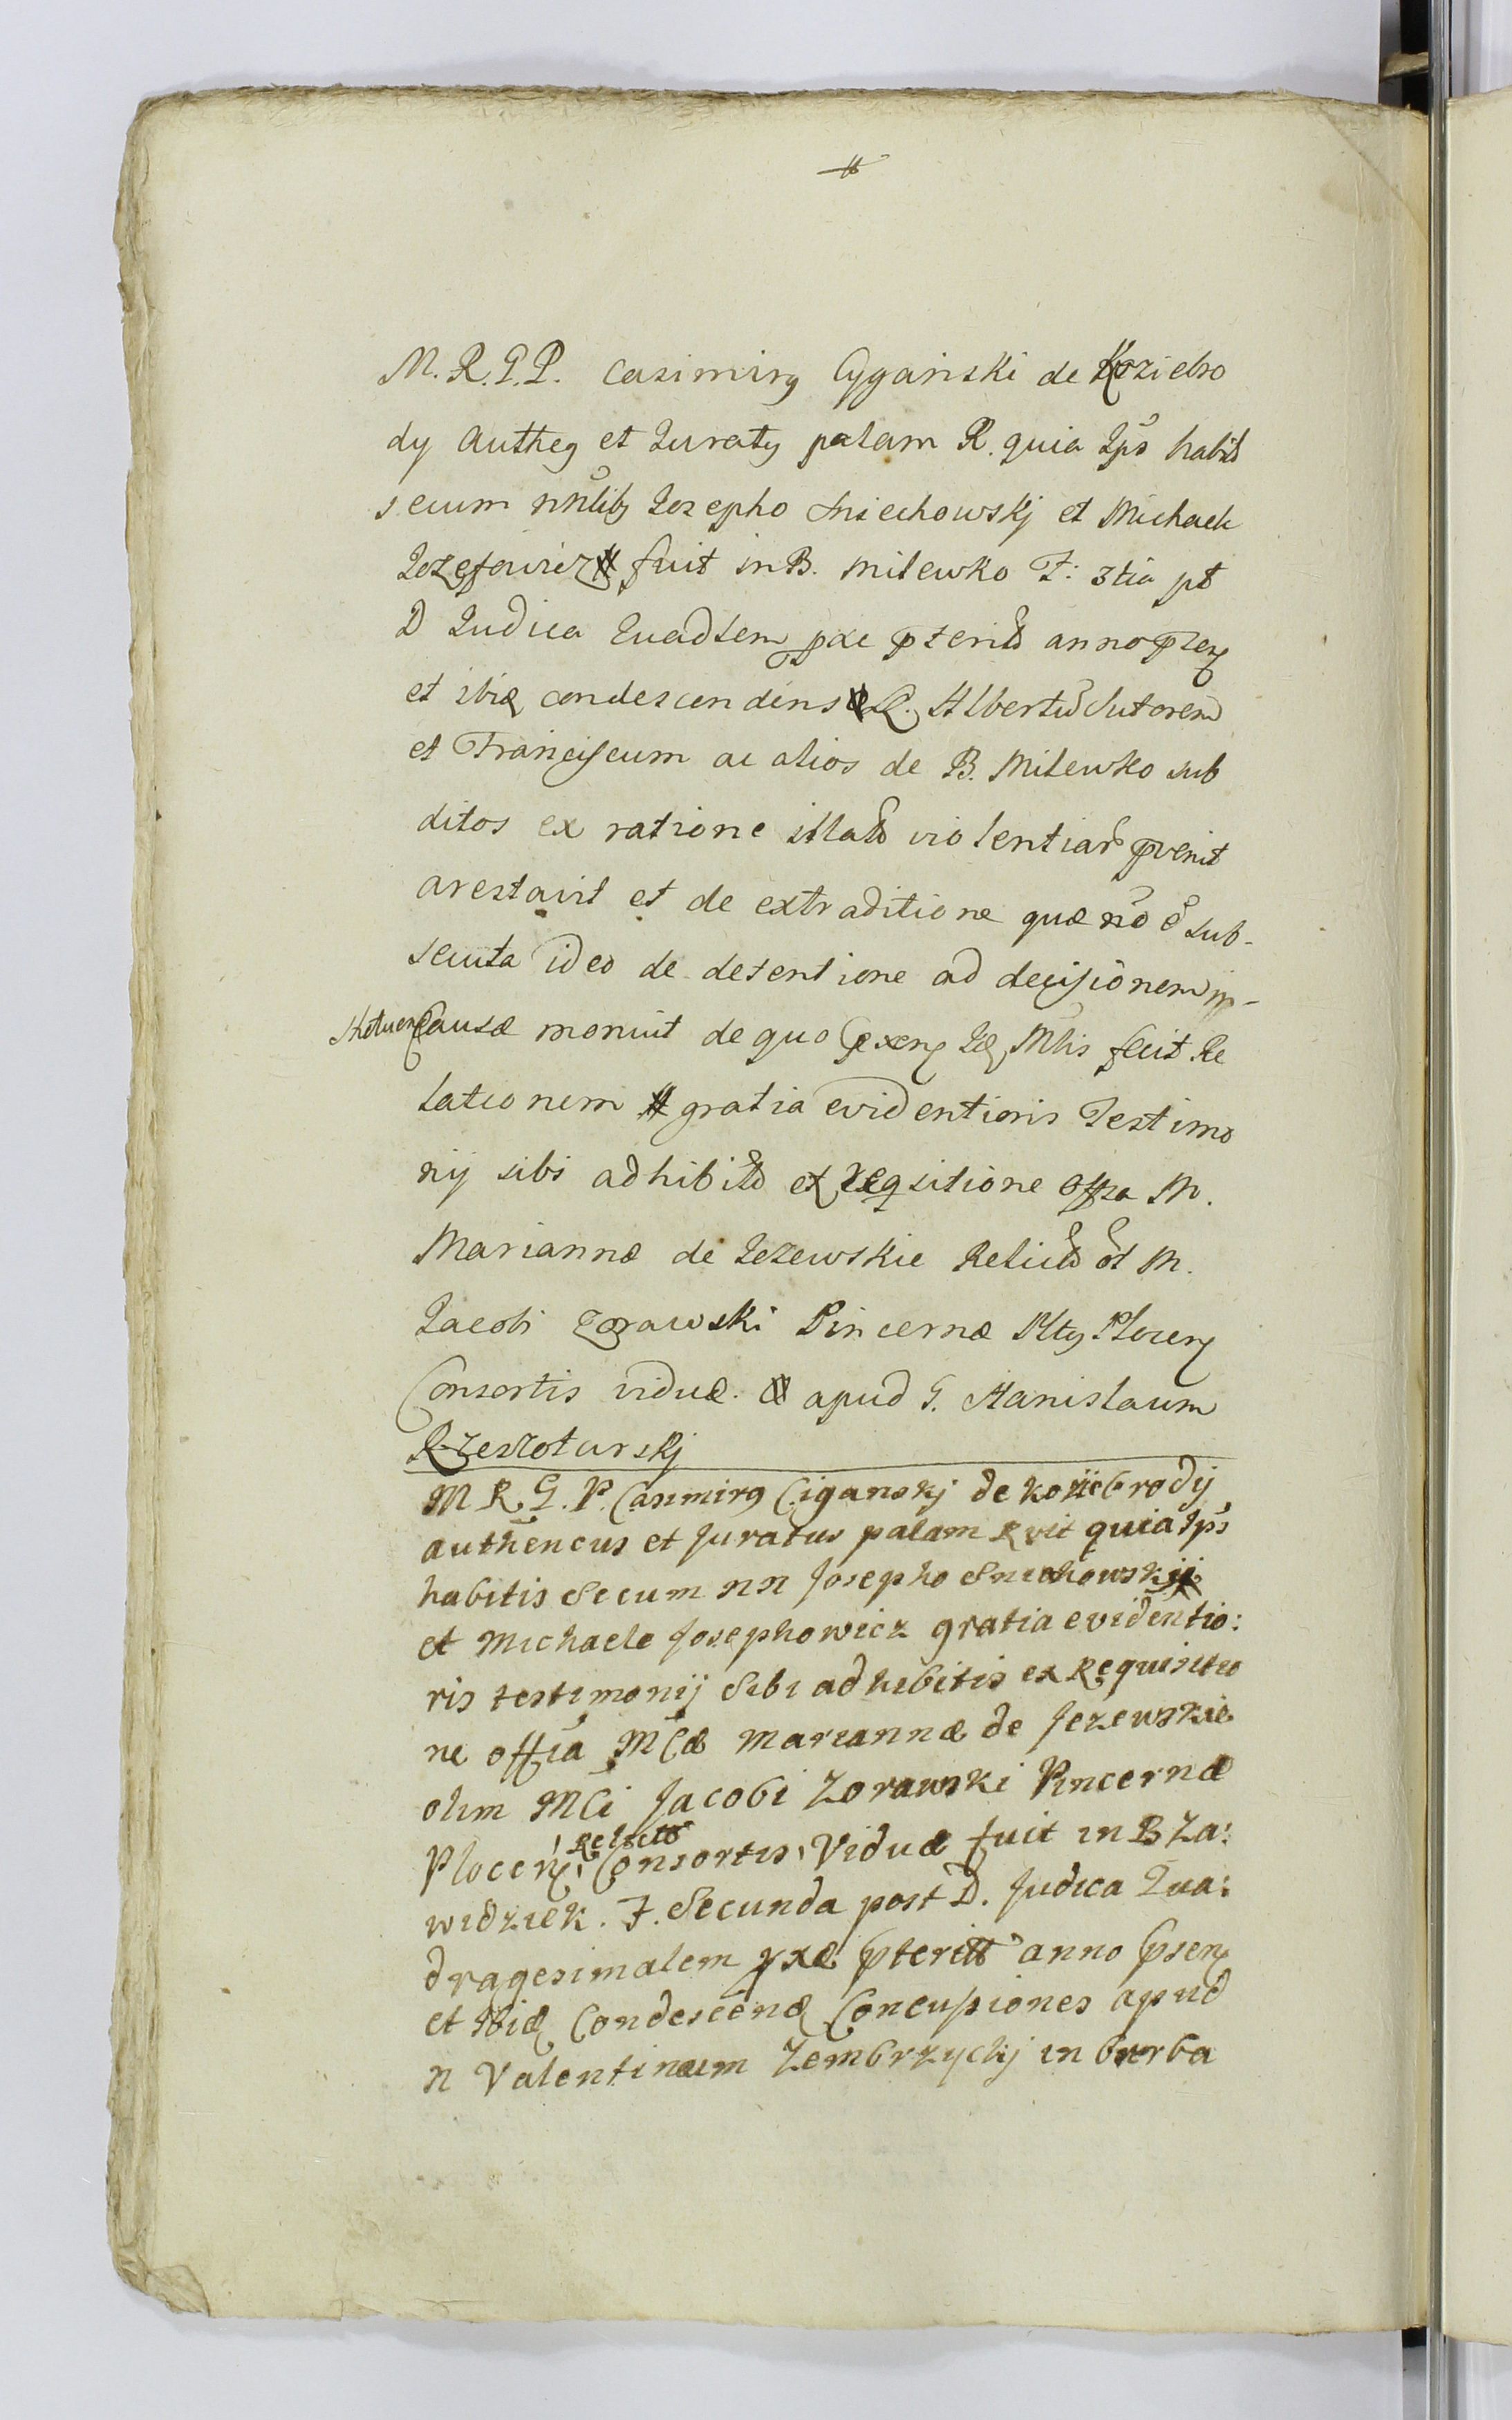 M. R. G. P. Casimirg Cygański de Koziebro
dy Autheg et Juratg palam R. quia Ips habits
secum nnlibg Jozepho Sniechowskj et Michaele
Jozefowicz fuit in B. Milewko F: 3tia pt
D Judica Quadlem pxe pterito anno psen
et ibiq condescendens Alberts Sutorem
et Franciscum ac alios de B. Milewko sub
ditos ex ratione illats violentiar pvenit
arestavit et de extraditione quæ no e sub-
secuta ideo de detentione ad decisionem
Causæ monuit de quo Mtis fecit Re
lationem gratia evidentioris Testimo
nij sibi adhibits ex reqsitione offsa M.
Mariannæ de Jezewskie Relicts ol M.
Jacobi Zorawski Pincernæ Plocen
Consortis viduæ. apud G. Stanislaum
Rzeszotarskj
M R. G. P. Casimirg Ciganskj de koziebrodij
authencus et Juratus palam Rvit quia Ips
habitis Secum nn Josepho Sniechowskij
et Michaele Josephowicz gratia evidentio:
ris testimonij Sibi adhibitis ex Requisitio
ne offsa Mcæ Mariannæ de Jezewskie
olim Mci Jacobi Zorawski Pincernæ
Relictæ
Plocen Consortis Viduæ fuit in B Za:
widziek. F. Secunda post D. Judica Qua:
dragesimalem pxe pteritt anno psen
et ibiq Condescend Concupiones apud
N Valentinum Zembrzyckj in verba